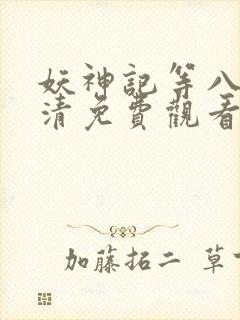 妖神記第八
清免費觀看
加藤拓二 草